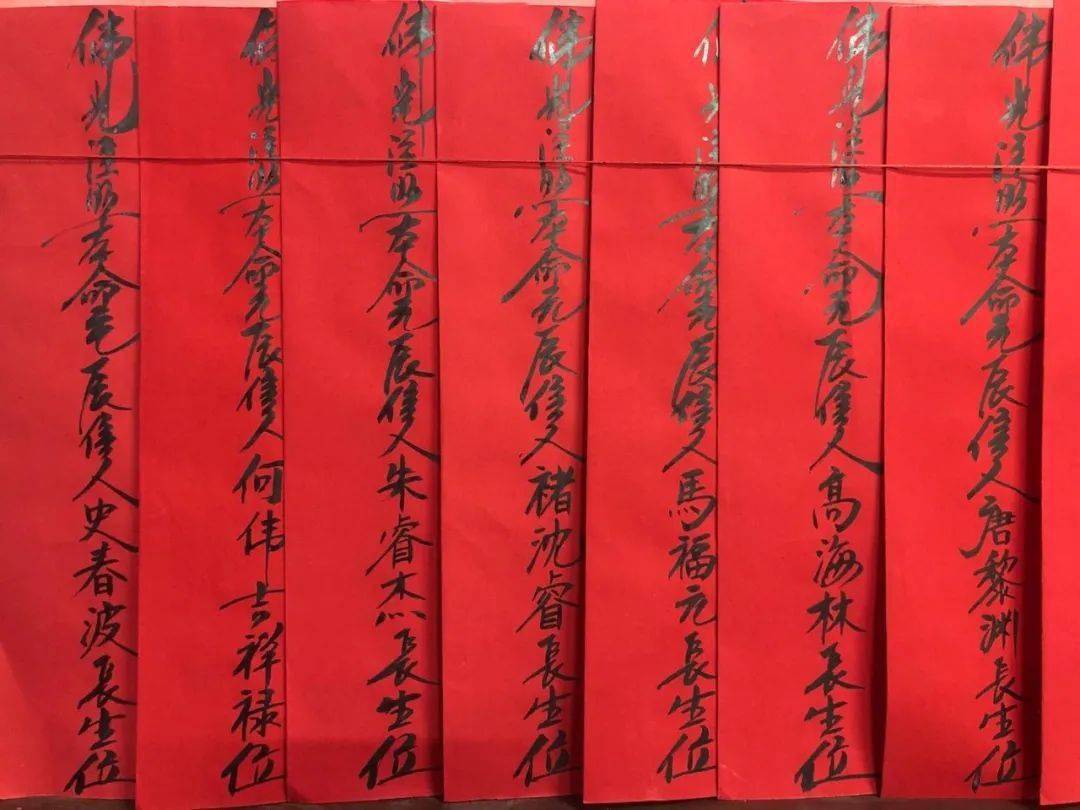 佛光注照本命元辰信人唐黎渊長生位
佛光注照本命元辰信人高海林長生位
佛光注照本命元辰信人馬福元長生位
佛光注照本命元辰信人褚沈睿長生位
佛光注照本命元辰信人朱睿杰長生位
佛光注照本命元辰信人何伟吉祥禄位
佛光注照本命元辰信人史春波長生位